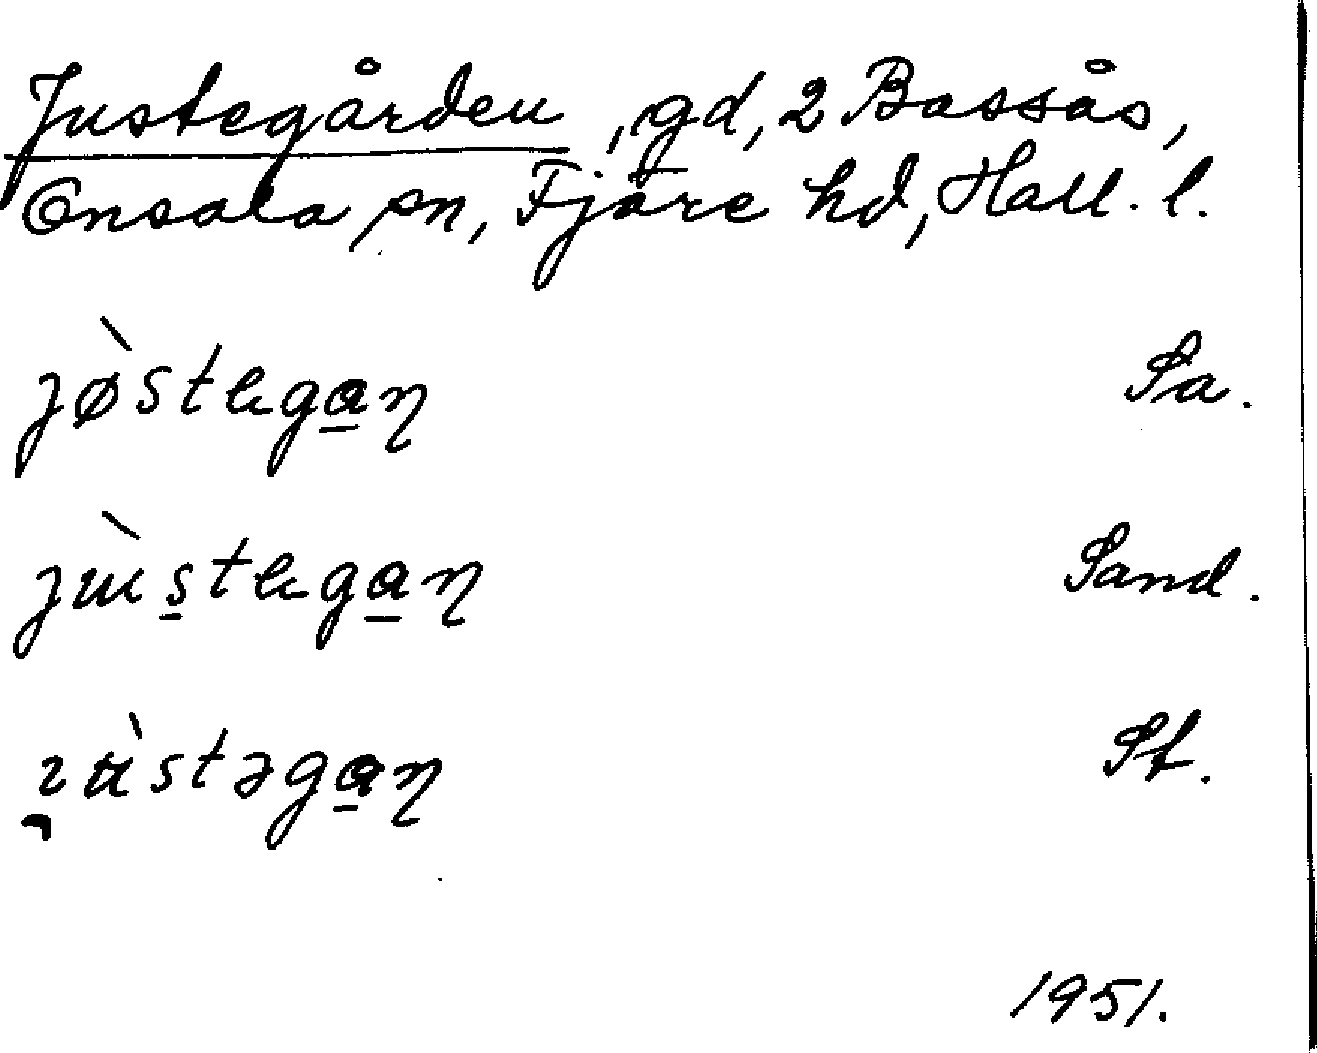 Justegården, gd, 2 Bassås,
Onsala sn, Fjäre hd, Hall. l.
jø̀stega̲ɳ Sa.
jɯ̀s̲tega̲ɳ Sand.
ʉ̀stəga̲ɳ St.
1951.